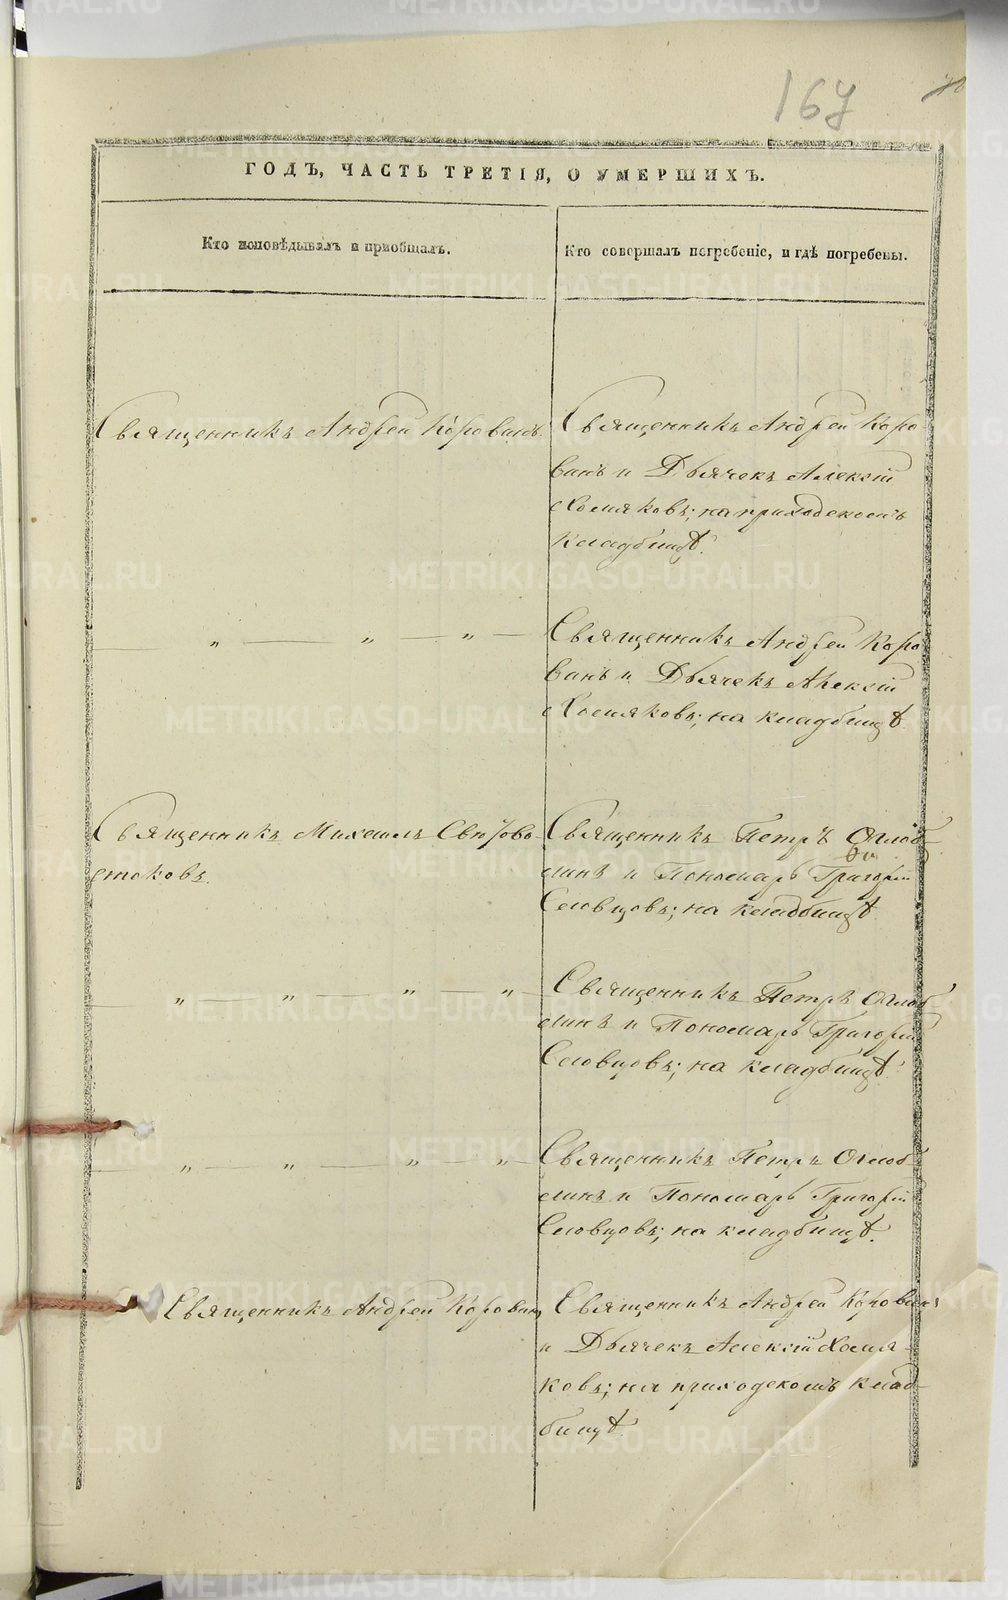 167
ГОДЪ, ЧАСТЬ ТРЕТІЯ, О УМЕРШИХЪ.
Кто исповѣдывалъ и пріобщалъ.
Кто совершалъ погребеніе, и гдѣ погребены.
Священникъ Андрей Корованъ.
Священникъ Андрей Коро-
ванъ и Дьячекъ Алексій
Хомяковъ; на приходскомъ
кладбищѣ.
„ — „ — „ —
Священникъ Андрей Коро
ванъ и Дьячекъ Алексій
Хомяковъ; на кладбищѣ
Священникъ Михаилъ
стоковъ.
Священникъ Петръ Оглоб-
линъ и Пономарь Григорій
Словцовъ; на кладбищѣ
— „ — „ — „ — „ —
Священникъ Петръ Оглоб
линъ и Пономарь Григорій
Словцовъ; на кладбищѣ.
— „ — „ — „ — „ —
Священникъ Петръ Оглоб-
линъ и Пономарь Григорій
Словцовъ; на кладбищѣ.
Священникъ Андрей Корованъ
Священникъ Андрей Корованъ
и Дьячекъ Алексій Хомя-
ковъ; на приходскомъ клад-
бищѣ.
METRIKI.GASO-URAL.RU